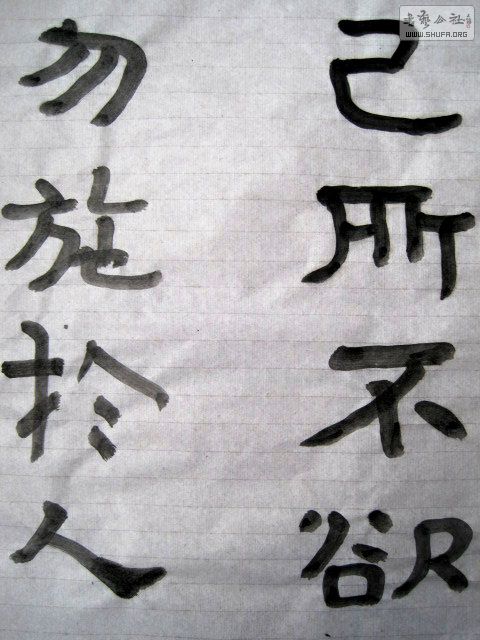 己所不欲
勿施於人
书艺公社
WWW.SHUFA.ORG